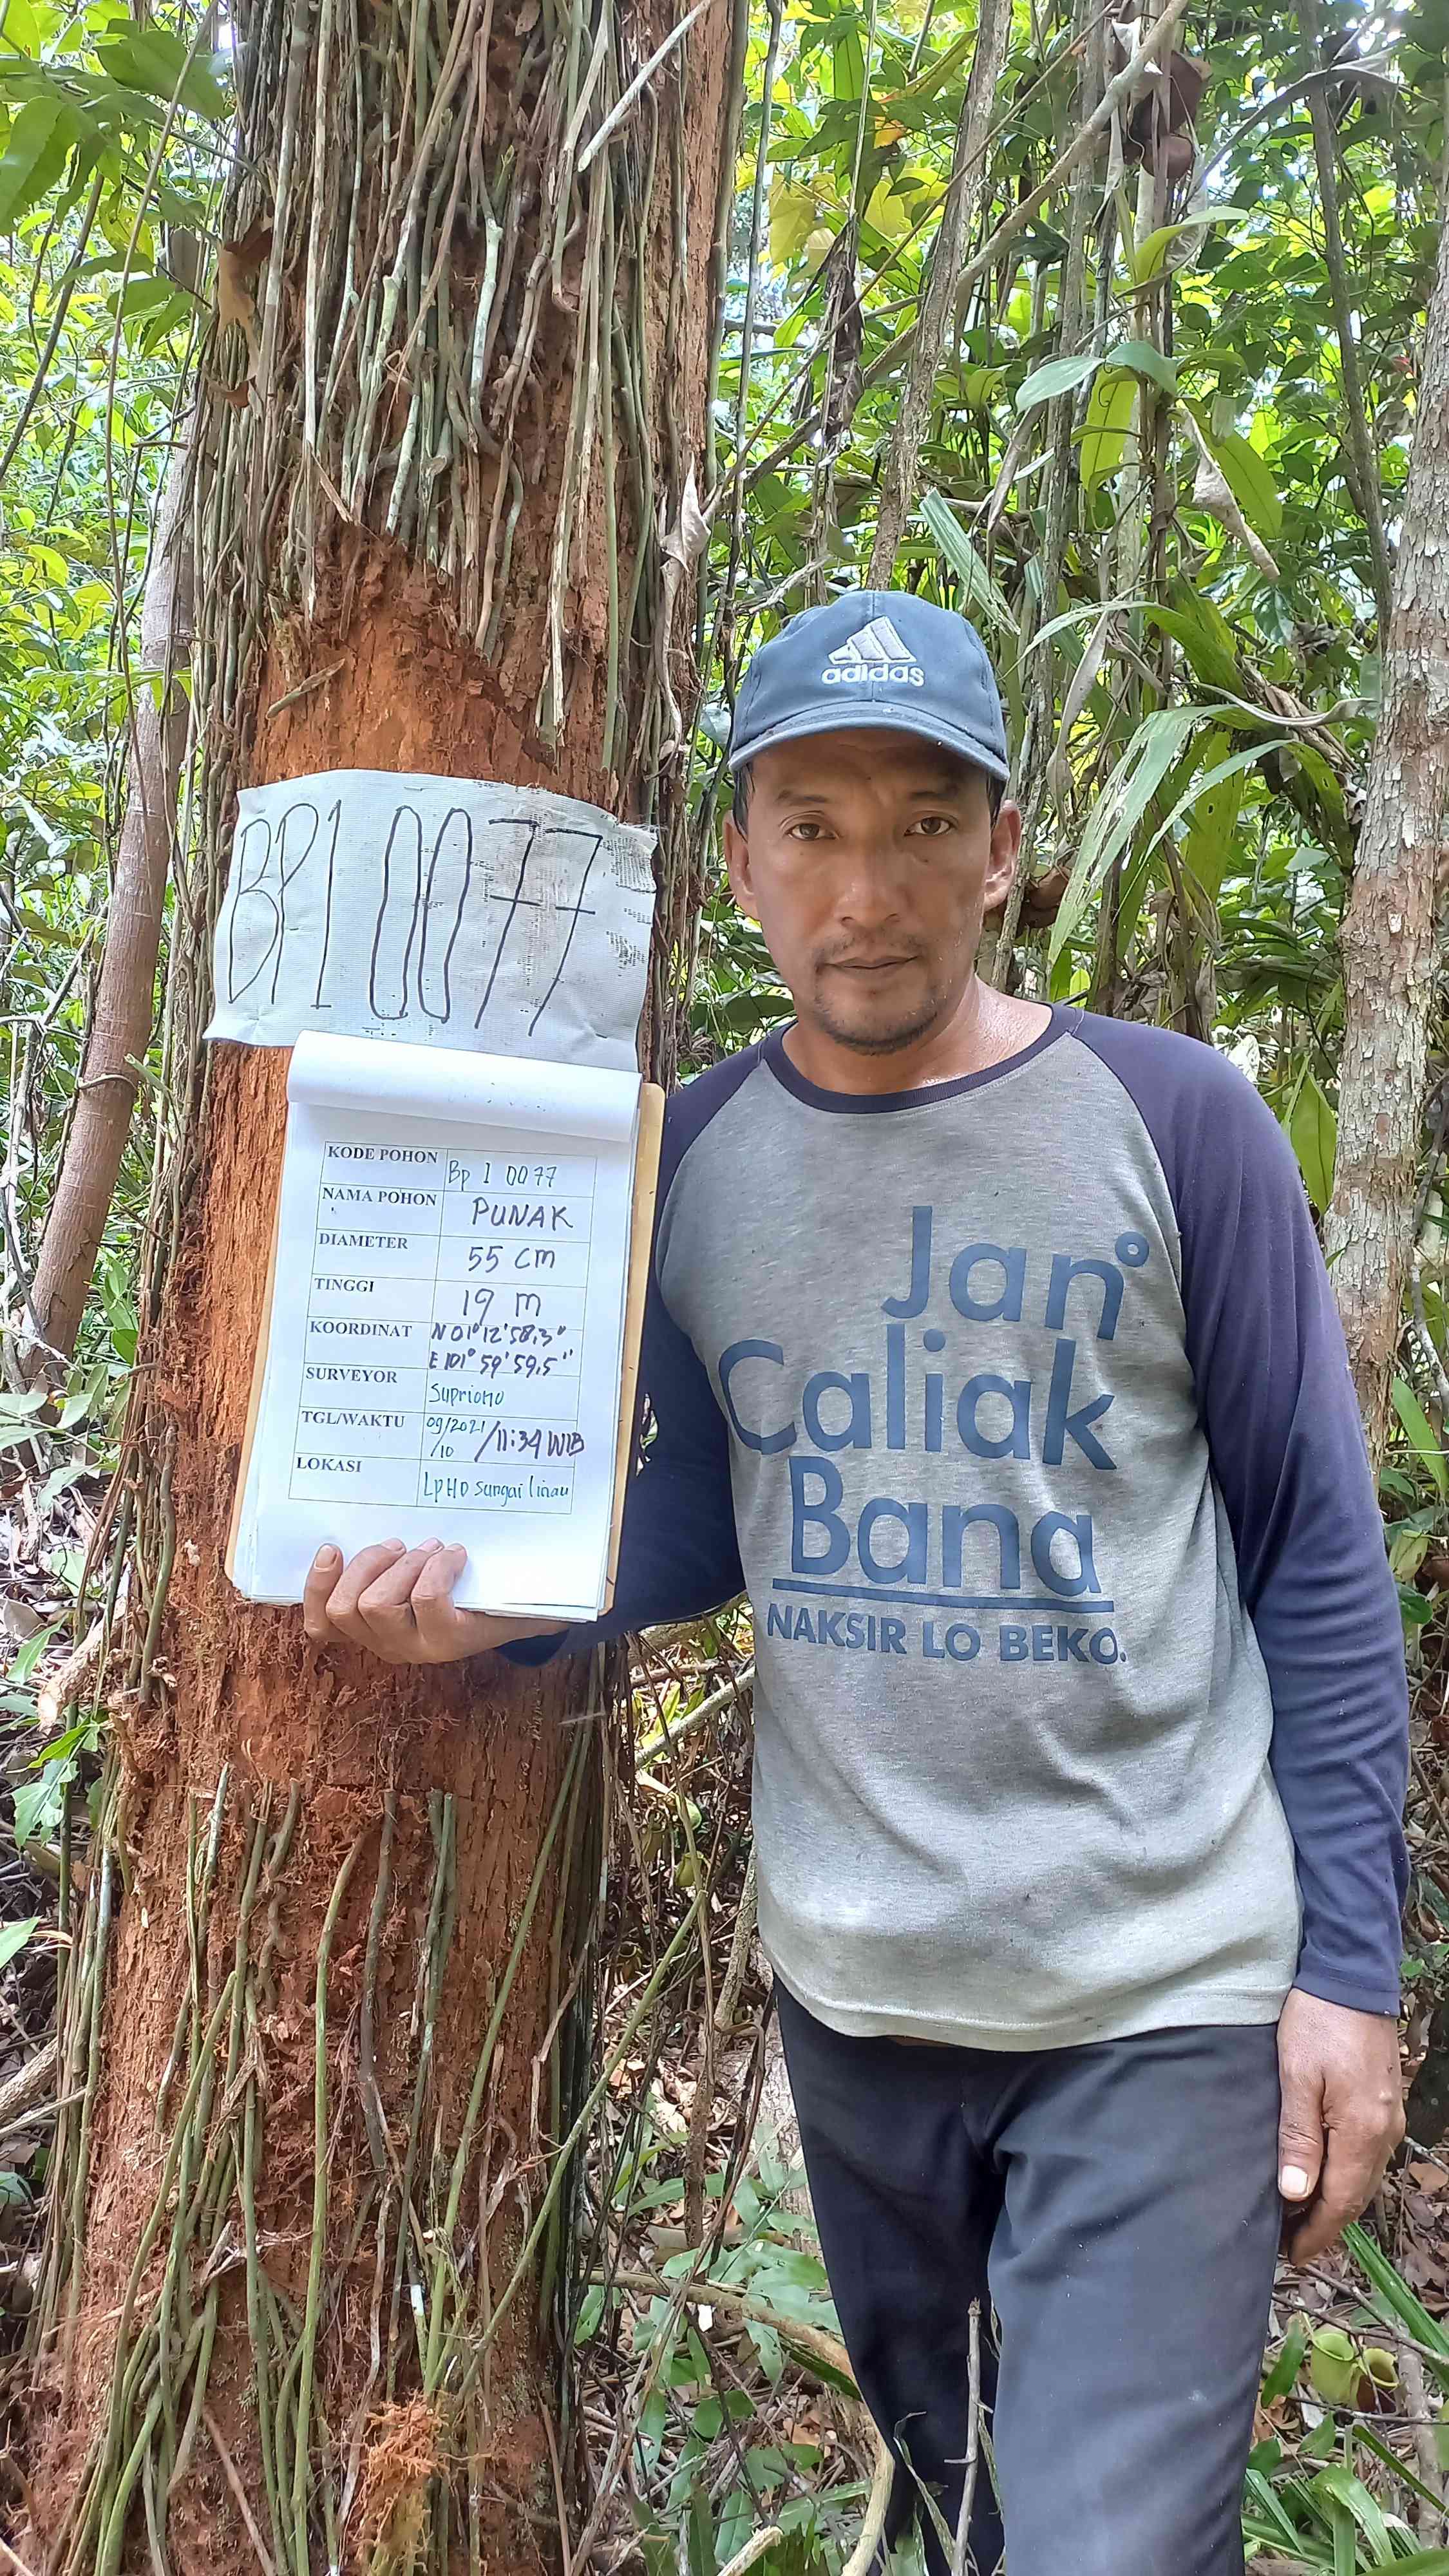 adidas
BP1 0077
KODE POHON Bp 1 0077
NAMA POHON PUNAK
DIAMETER 55 cm
TINGGI 19 m
KOORDINAT N 01° 12' 58,3"
E 101° 59' 59,5"
SURVEYOR Supriono
TGL/WAKTU 09/2021 /11:34 WIB
/10
LOKASI LPHD Sungai linau
Jan°
Caliak
Bana
NAKSIR LO BEKO.